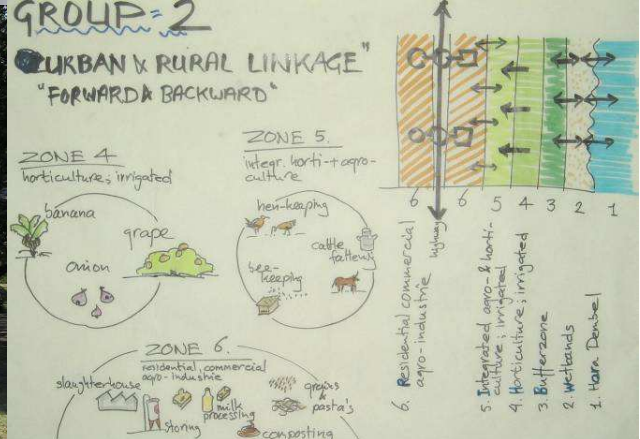 GROUP=2
"URBAN & RURAL LINKAGE"
"FORWARD & BACKWARD"
ZONE 4
horticulture; irrigated
banana
grape
onion
ZONE 5.
integr. horti-+agro-
culture
hen-keeping
cattle
fatten
bee-
keeping
ZONE 6.
residential, commercial
agro-industrie
slaughterhouse
storing
milk
processing
grains
& pasta's
composting
6 6 5 4 3 2 1
highway
6. Residential commercial
agro-industrie
5. Integrated agro- & horti-
culture; irrigated
4. Horticulture; irrigated
3. Bufferzone
2. Wetlands
1. Hara Dembel